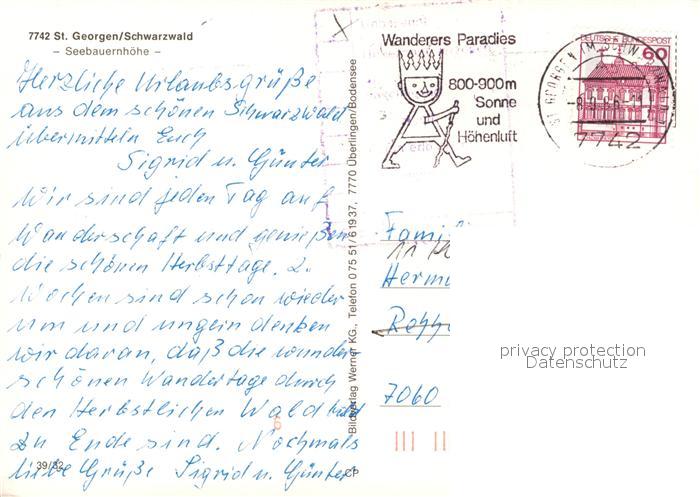 7742 St. Georgen/Schwarzwald
– Seebauernhöhe –
Herzliche Urlaubsgrüße
aus dem schönen Schwarzwald
übermitteln Euch
Sigrid u. Günter
Wir sind jeden Tag auf
Wanderschaft und genießen
die schönen Herbsttage. 2.
Wochen sind schon wieder
um und ungern denken
wir daran, daß die wunder
schönen Wandertage durch
den Herbstlichen Wald bald
zu Ende sind. Nochmals
liebe Grüße Sigrid u. Günter
39/32
CP
Bildverlag Werner KG., Telefon 0 75 51 / 6 19 37, 7770 Überlingen/Bodensee
Wanderers Paradies
800-900m
Sonne
und
Höhenluft
DEUTSCHE BUNDESPOST
60
ST GEORGEN IM SCHW
7742
Fami
Herm
7060
privacy protection
Datenschutz